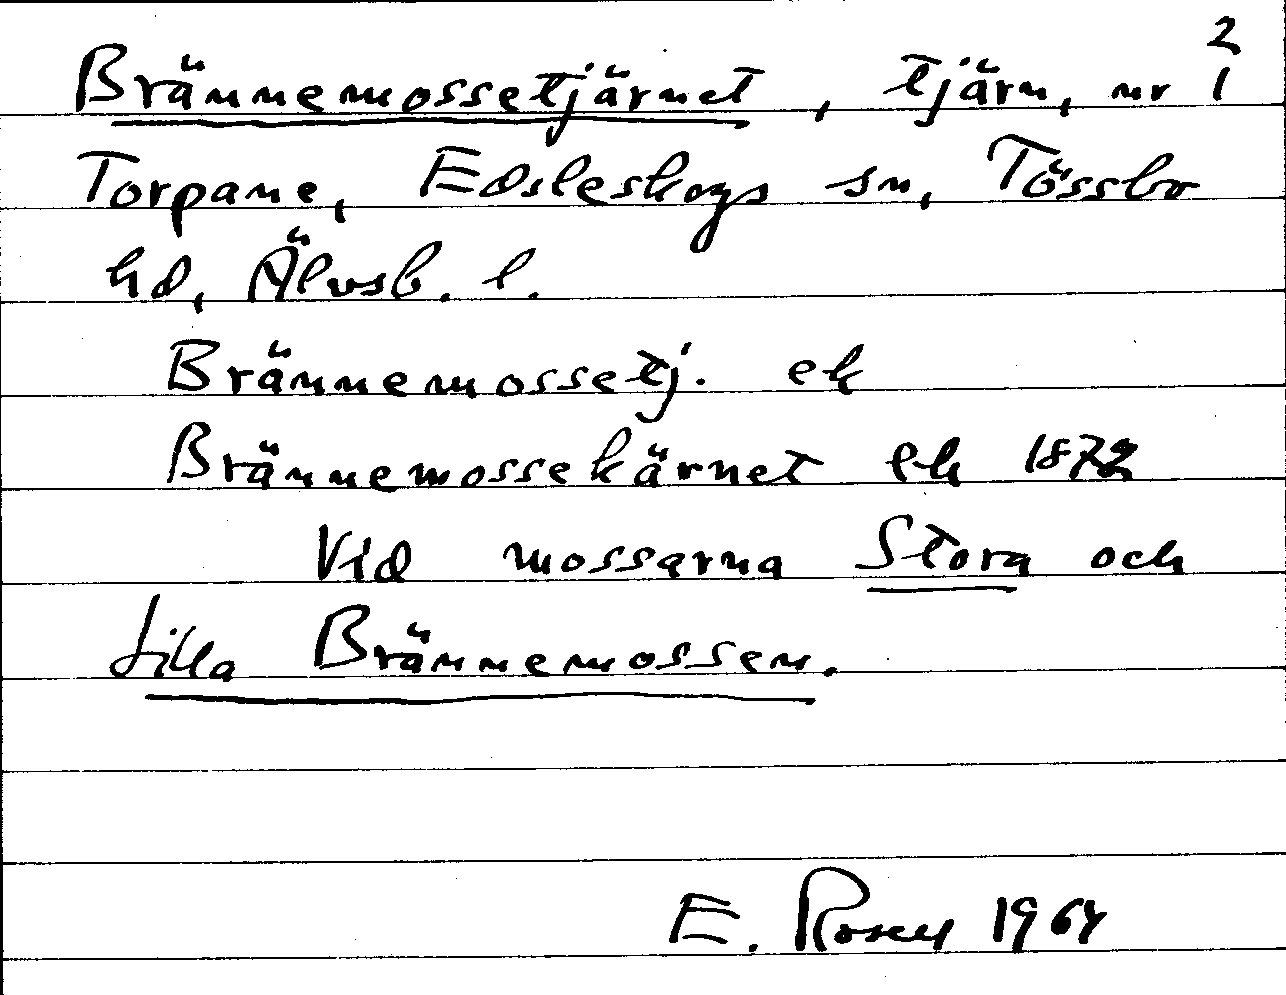 2
Brännemossetjärnet, tjärn, nr 1
Torpane, Edsleskogs sn, Tössbo
hd, Älvsb. l.
Brännemossetj. ek
Brännemossekärnet ek 1872
Vid mossarna Stora och
Lilla Brännemossen.
E. Rosell 1964